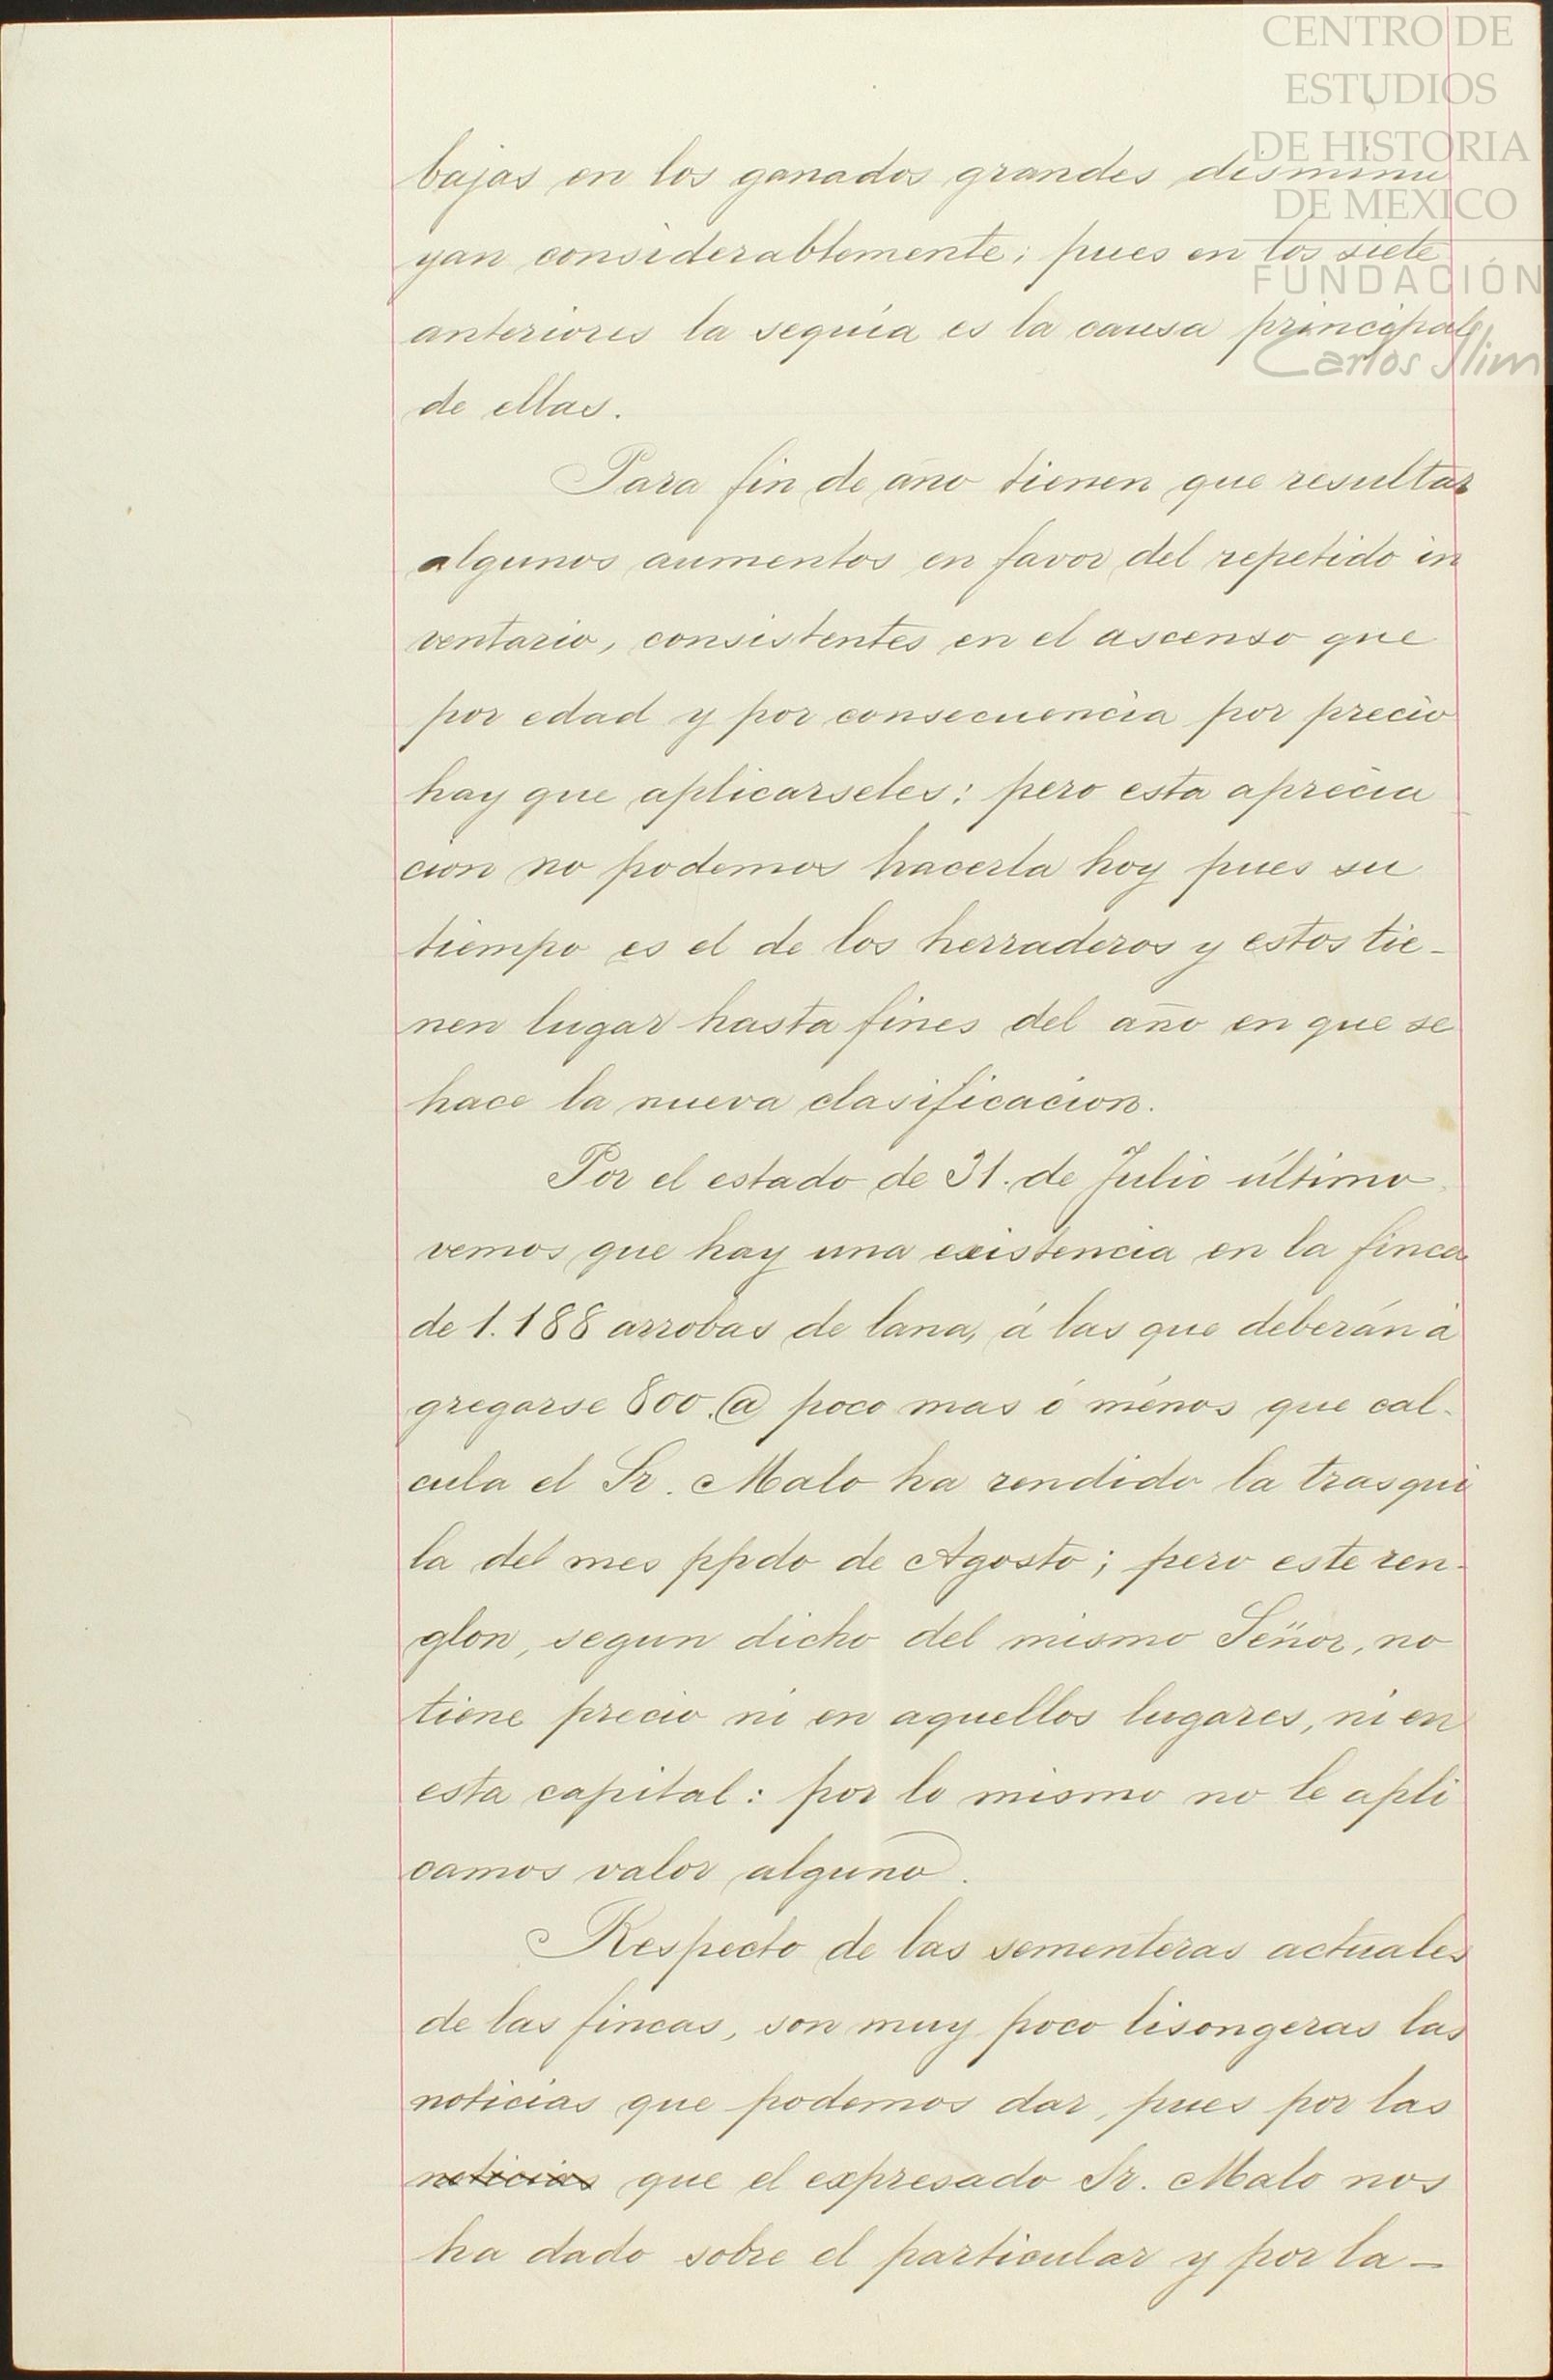 CENTRO DE
ESTUDIOS
DE HISTORIA
DE MEXICO
FUNDACIÓN
Carlos Slim
bajas en los ganados grandes disminu
yan considerablemente; pues en los siete
anteriores la sequía es la causa principal
de ellas.
Para fin de año tienen que resultar
algunos aumentos en favor del repetido in
ventario, consistentes en el ascenso que
por edad y por consecuencia por precio
hay que aplicarseles: pero esta aprecia
cion no podemos hacerla hoy pues su
tiempo es el de los herraderos y estos tie-
nen lugar hasta fines del año en que se
hace la nueva clasificacion.
Por el estado de 31. de Julio último
vemos que hay una existencia en la finca
de 1.188 arrobas de lana, á las que deberán a
gregarse 800. @ poco mas ó ménos que cal-
cula el Sr. Malo ha rendido la trasqui
la del mes ppdo de Agosto; pero este ren-
glon, segun dicho del mismo Señor, no
tiene precio ni en aquellos lugares, ni en
esta capital: por lo mismo no le apli
camos valor alguno.
Respecto de las sementeras actuales
de las fincas, son muy poco lisongeras las
noticias que podemos dar, pues por las
noticias que el expresado Sr. Malo nos
ha dado sobre el particular y por la-